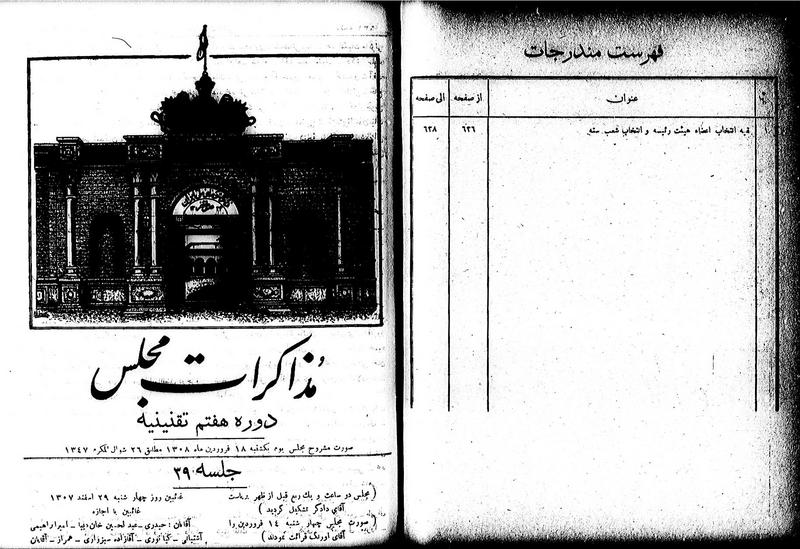 مذاکرات مجلس
دوره هفتم تقنینیه
صورت مشروح مجلس یوم یکشنبه ۱۸ فروردین ماه ۱۳۰۸ مطابق ۲۶ شوال المکرم ۱۳۴۷
جلسه ۳۹
(مجلس دو ساعت و یک ربع قبل از ظهر بریاست
آقای دادگر تشکیل گردید)
(صورت مجلس چهار شنبه ۱۴ فروردین را
آقای اورنگ قرائت نمودند)
غائبین روز چهار شنبه ۲۹ اسفند ۱۳۰۷
غائبین با اجازه
آقایان: حیدری ـ عبدالحسین خان دیبا ـ امیر ابراهیمی
آشتیانی ـ کیا نوری ـ آقازاده سبزواری ـ همراز ـ آقایان
فهرست مندرجات
عنوان از صفحه الی صفحه
بقیه انتخاب اعضاء هیئت رئیسه و انتخاب شعب سته ۶۳۶ ۶۳۸